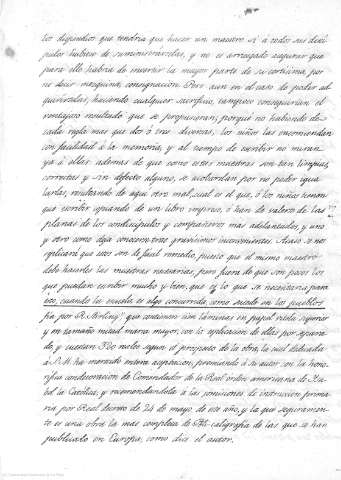 los dispendios que tendria que hacer un maestro si á todos sus disci-
pulos hubiese de suministrárselas, y no es arriesgado asegurar que
para ello habria de invertir la mayor parte de su cortísima, por
no decir mezquina, consignacion. Pero aun en el caso de poder ad-
quirirlas, haciendo cualquier sacrificio, tampoco conseguirian el
ventajoso resultado que se propusieran; porque no habiendo de
cada regla mas que dos ó tres diversas, los niños las encomiendan
con facilidad á la memoria, y al tiempo de escribir no miran
ya á ellas: ademas de que como estas muestras son tan limpias,
correctas y sin defecto alguno, se acobardan por no poder igua
larlas, resultando de aqui otro mal, cual es el que, ó los niños tienen
que escribir copiando de un libro impreso, ó han de valerse de las
planas de los condiscípulos y compañeros mas adelantados, y uno
y otro como deja conocerse trae gravísimos inconvenientes. Acaso se nos
replicará que esto es de facil remedio, puesto que el mismo maestro
debe hacerles las muestras necesarias, pero fuera de que son pocos los
que puedan escribir mucho y bien, que es lo que se necesitaria para
eso, cuando la escuela es algo concurrida, como sucede en los pueblos
fia por R. Stirling: que contienen láminas en papel vitela superior
y en tamaño mitad marca mayor, con la esplicacion de ellas por separa-
do, y cuestan 320 reales segun el prospecto de la obra, la cual dedicada
á S.M. ha merecido íntima aceptacion, premiando á su autor con la hono-
rífica condecoracion de Comendador de la Real orden americana de Isa-
bel la Católica, y recomendándola á las comisiones de instruccion prima-
ria por Real decreto de 24 de mayo de ese año, y la que seguramen-
te es una obra la mas completa de caligrafía de las que se han
publicado en Europa, como dice el autor.